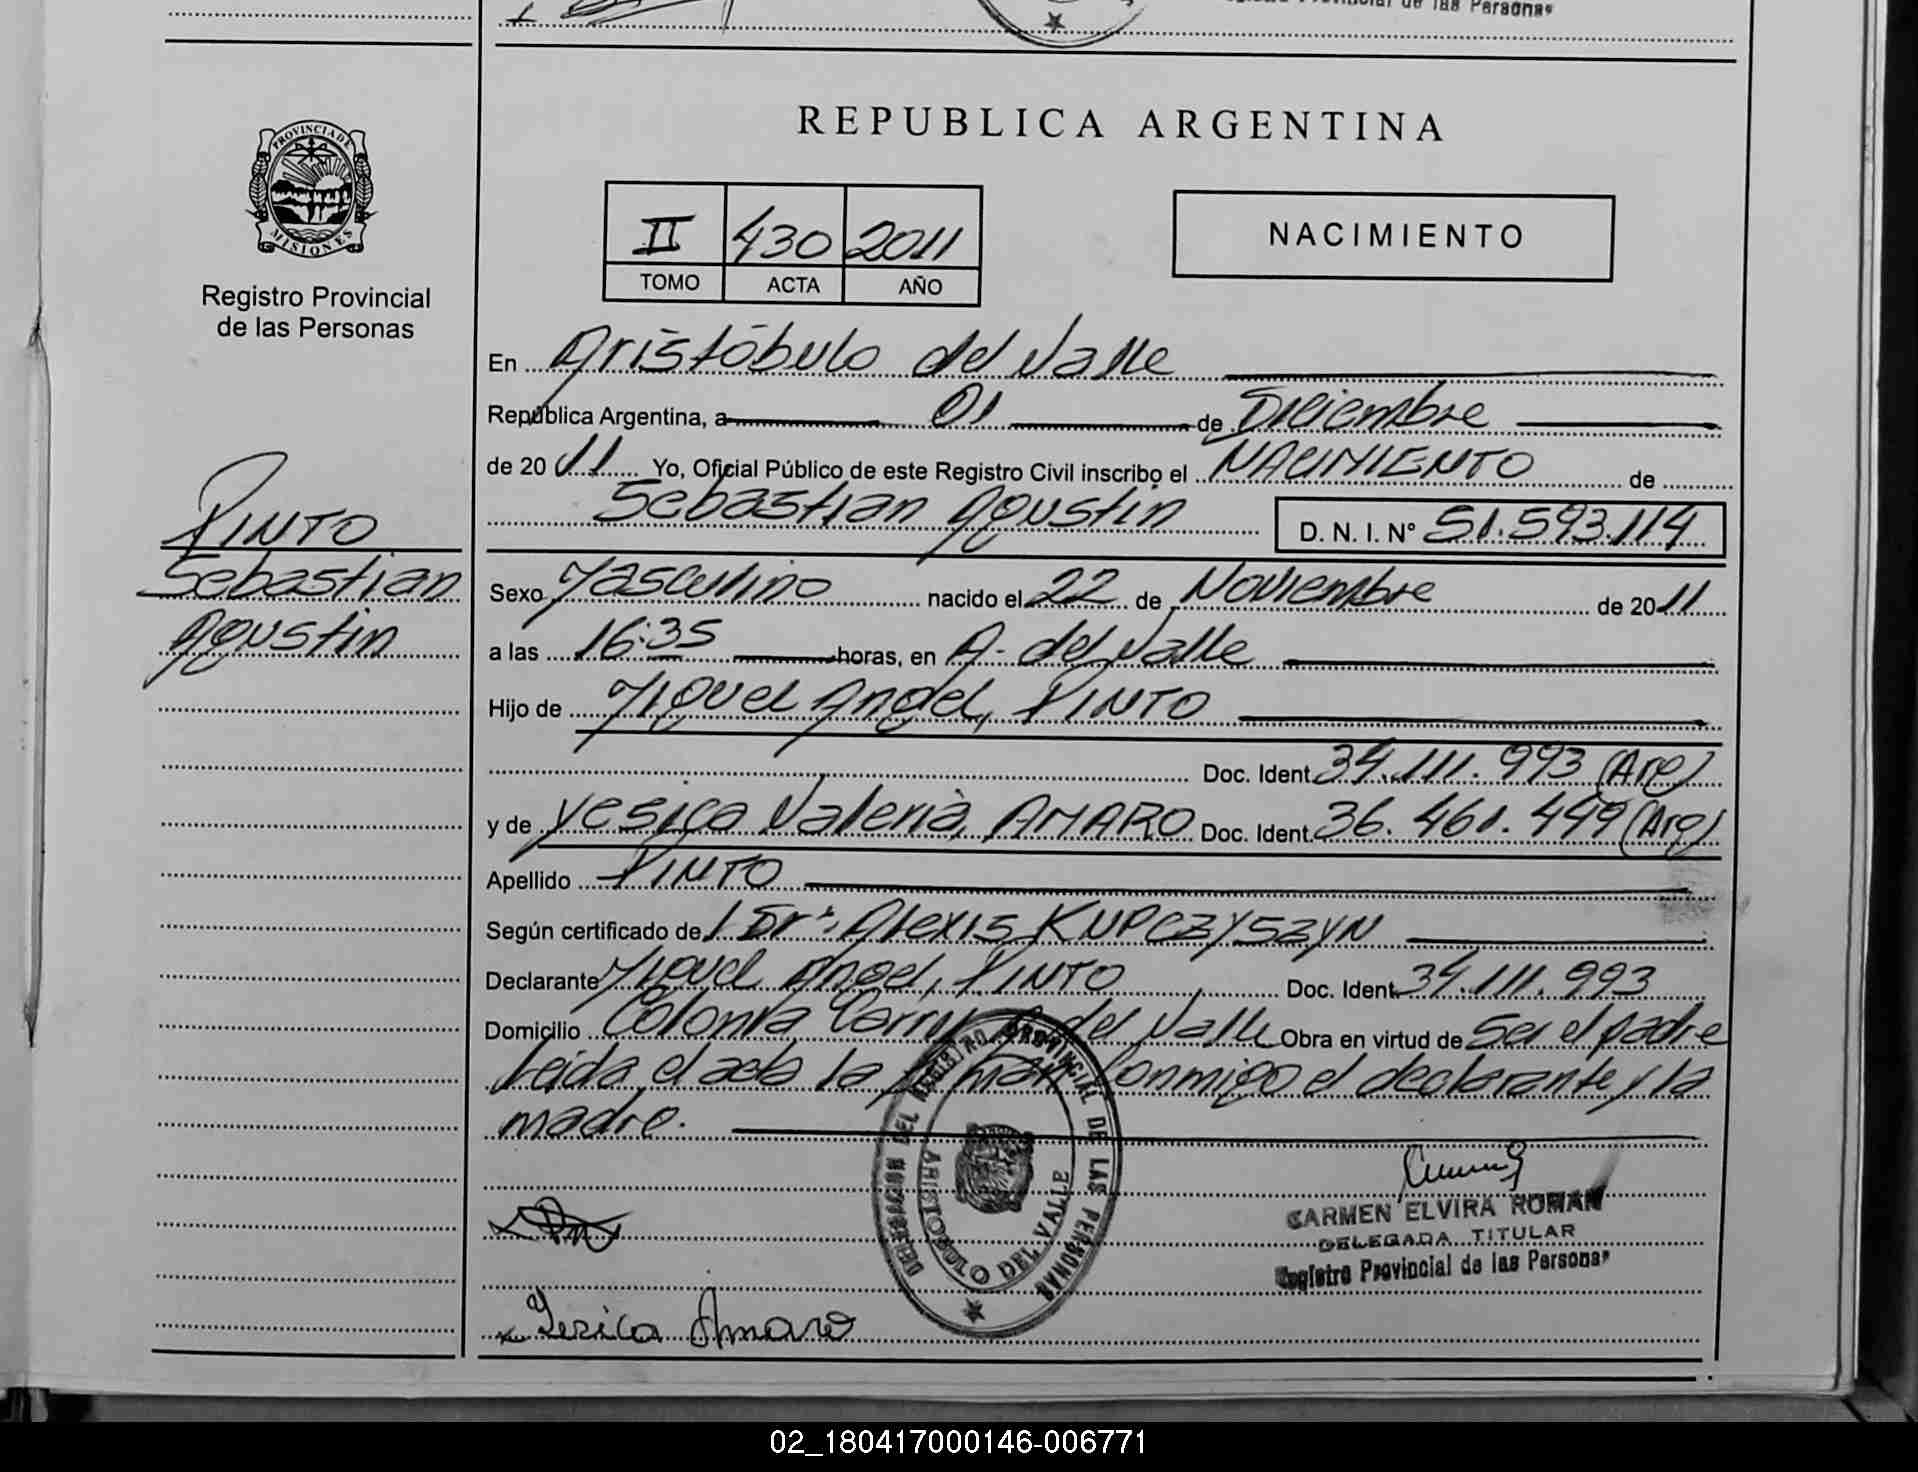 de las Personas
REPUBLICA ARGENTINA
PROVINCIA DE
MISIONES
Registro Provincial
de las Personas
II 430 2011
TOMO ACTA AÑO
NACIMIENTO
En Aristóbulo del Valle
República Argentina, a 01 de Diciembre
de 2011 Yo, Oficial Público de este Registro Civil inscribo el NACIMIENTO de
Sebastian Agustin D. N. I. N° 51.593.114
PINTO
Sebastian
Agustin
Sexo Masculino nacido el 22 de Noviembre de 2011
a las 16:35 horas, en A. del Valle
Hijo de Miguel Angel, PINTO
Doc. Ident. 34.111.993 (Arg)
y de Yesica Valeria, AMARO Doc. Ident. 36.461.499 (Arg)
Apellido PINTO
Según certificado de Dr. Alexis KUPCZYSZYN
Declarante Miguel Angel, PINTO Doc. Ident. 34.111.993
Domicilio Colonia del Valle Obra en virtud de Ser el padre
Leida el acta la firman conmigo el declarante y la
madre.
DELEGACION DEL REGISTRO PROVINCIAL DE LAS PERSONAS
ARISTOBULO DEL VALLE
CARMEN ELVIRA ROMAN
DELEGADA TITULAR
Registro Provincial de las Personas
Yesica Amaro
02_180417000146-006771